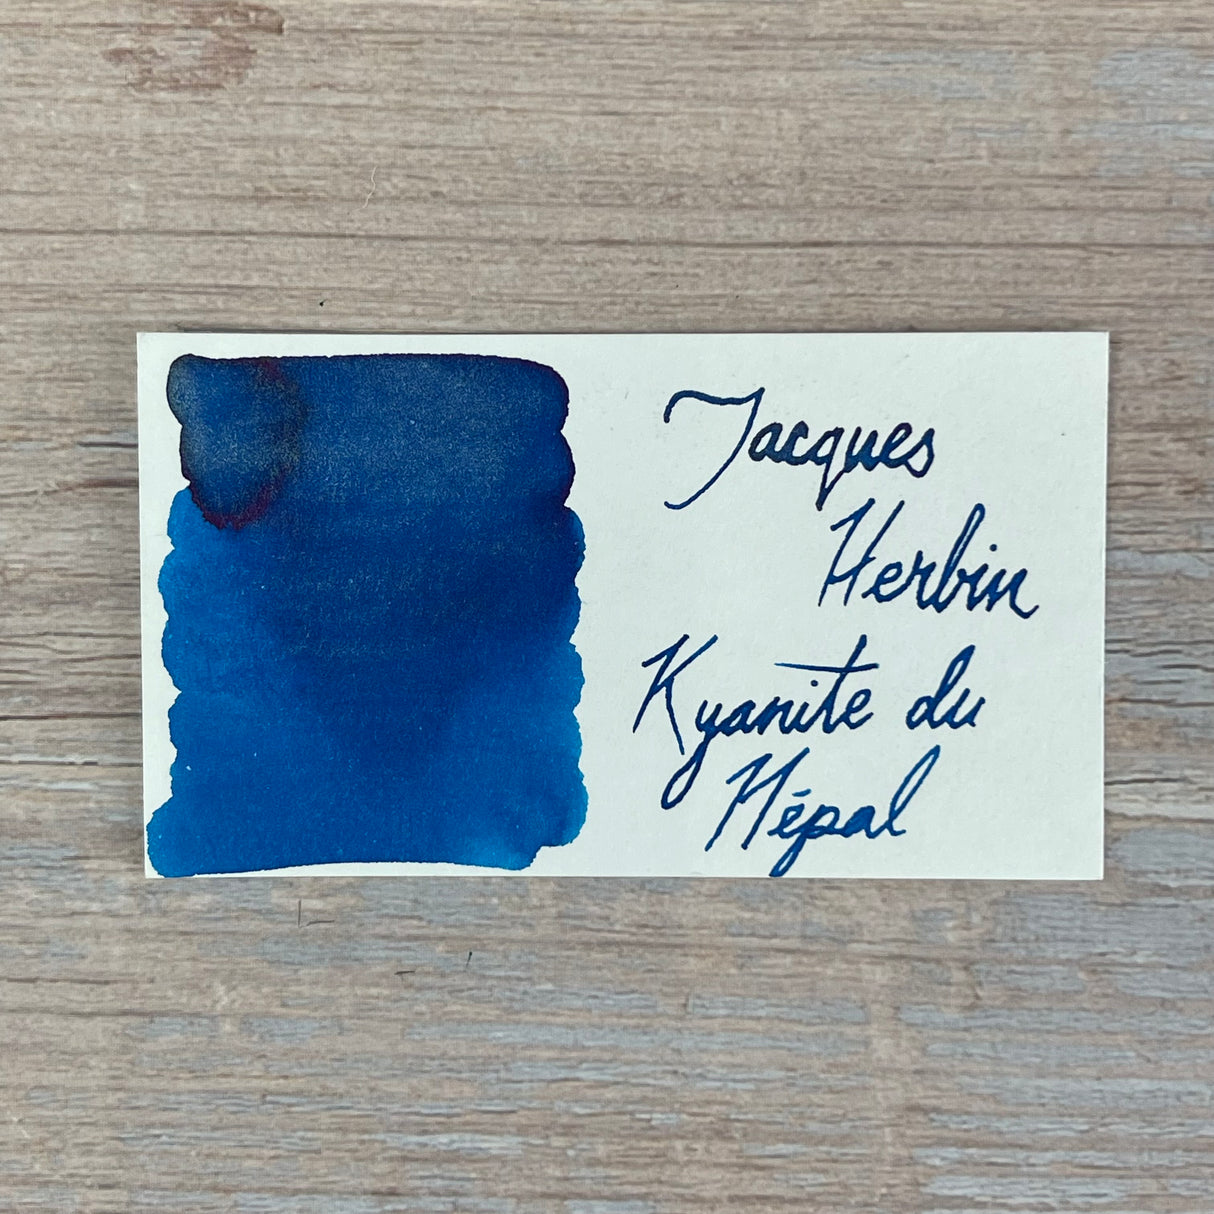 Jacques
Herbin
Kyanite du
Népal